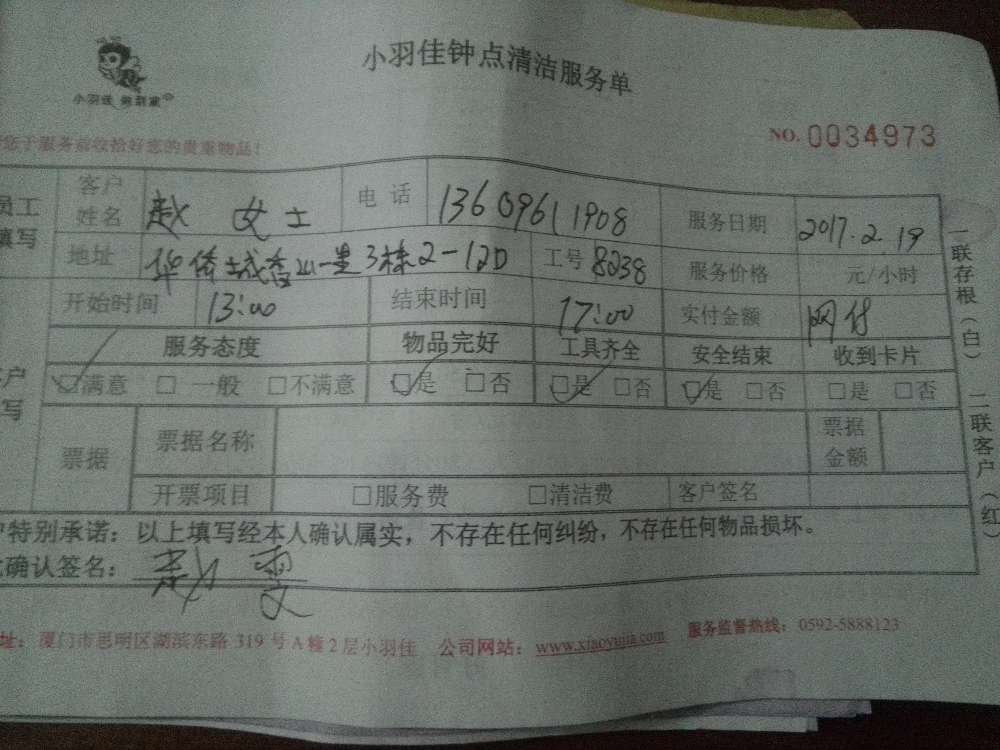 小羽佳钟点清洁服务单
小羽佳 做到家
NO. 0034973
您于服务前收拾好您的贵重物品!
员工填写 客户姓名 赵 女士 电话 13609611908 服务日期 2017.2.19
地址 华侨城香山一里3栋2-12D 工号 8238 服务价格 元/小时
开始时间 13:00 结束时间 17:00 实付金额 网付
服务态度 物品完好 工具齐全 安全结束 收到卡片
☑满意 □一般 □不满意 ☑是 □否 ☑是 □否 ☑是 □否 □是 □否
户写
票据 票据名称 票据金额
开票项目 □服务费 □清洁费 客户签名
户特别承诺:以上填写经本人确认属实,不存在任何纠纷,不存在任何物品损坏。
确认签名:赵雯
址:厦门市思明区湖滨东路319号A幢2层小羽佳 公司网站:www.xiaoyujia.com 服务监督热线:0592-5888123
一联存根(白) 二联客户(红)